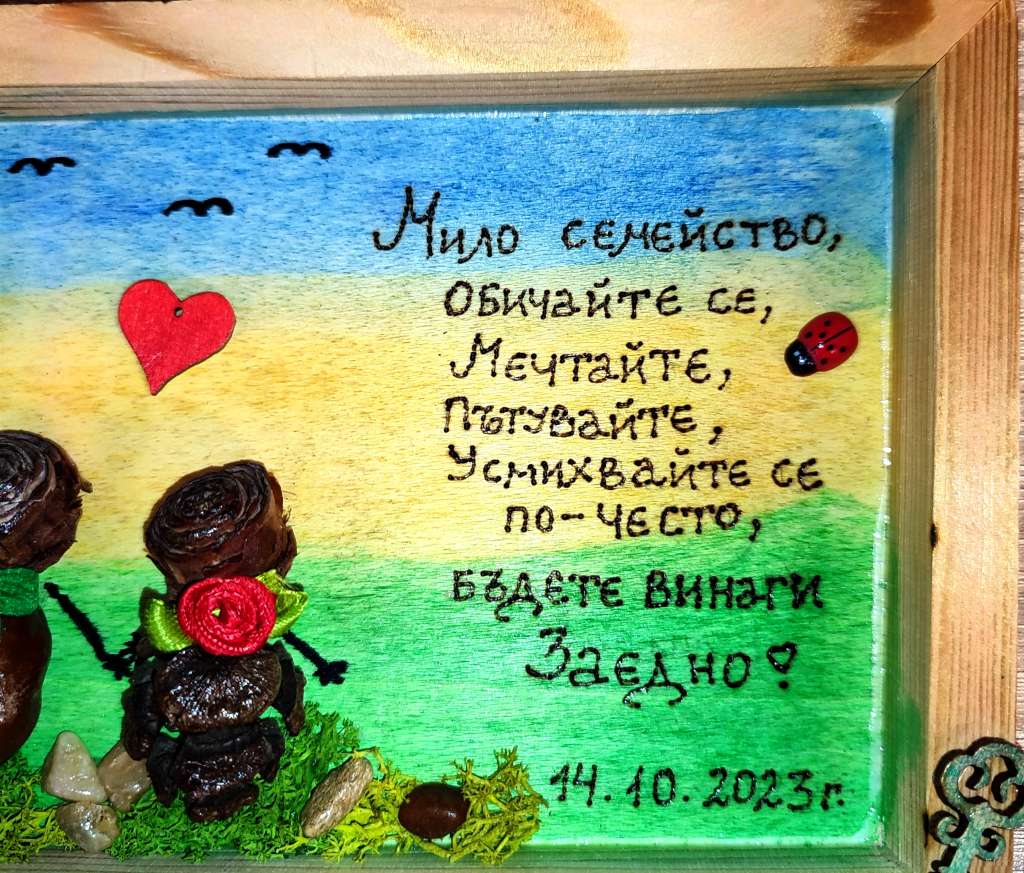 Мило семейство,
Обичайте се,
Мечтайте,
Пътувайте,
Усмихвайте се
по-често,
бъдете винаги
Заедно!
14.10.2023г.